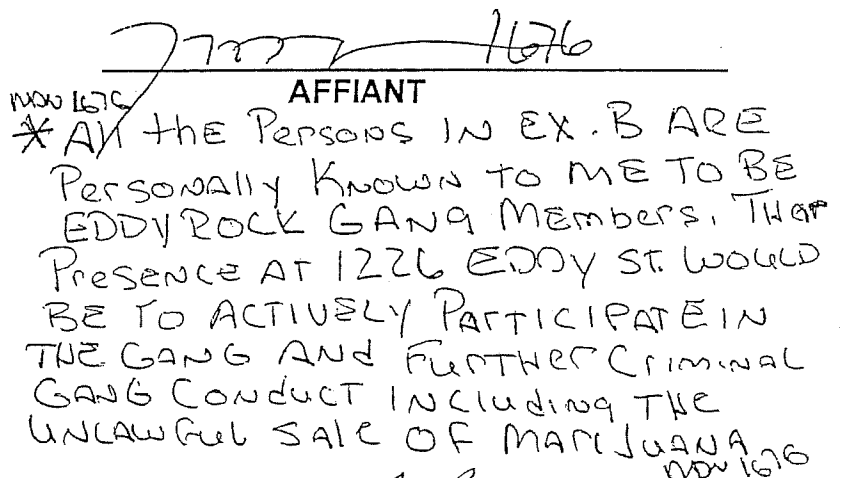 1676
AFFIANT
MDV 1676
* All the Persons IN EX. B ARE
Personally KNOWN to ME TO BE
EDDYROCK GANG Members. Their
Presence AT 1226 EDDY ST. WOULD
BE TO ACTIVELY PARTICIPATE IN
THE GANG AND FURTHER Criminal
GANG CONDUCT INCluding THE
UNLAWFUL SALE OF MARIJUANA
MDV 1676